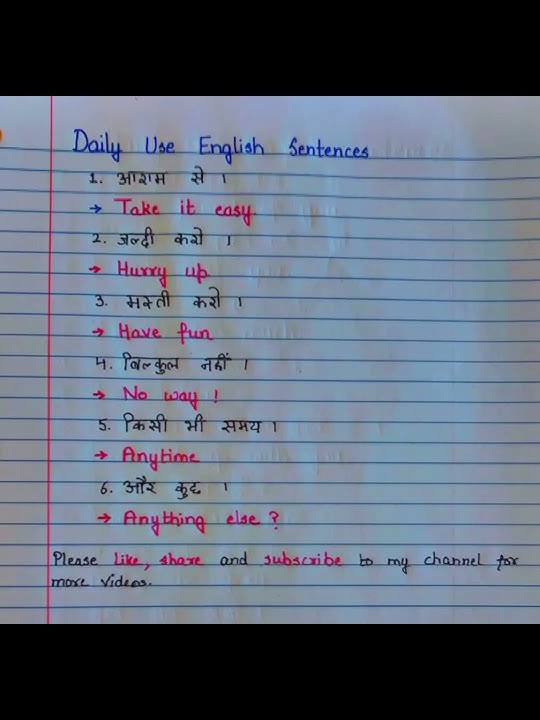 Daily Use English Sentences
1. आराम से ।
→ Take it easy.
2. जल्दी करो ।
→ Hurry up
3. मस्ती करो ।
→ Have fun
4. बिल्कुल नहीं ।
→ No way !
5. किसी भी समय ।
→ Anytime
6. और कुछ ।
→ Anything else ?
Please like, share and subscribe to my channel for
more videos.